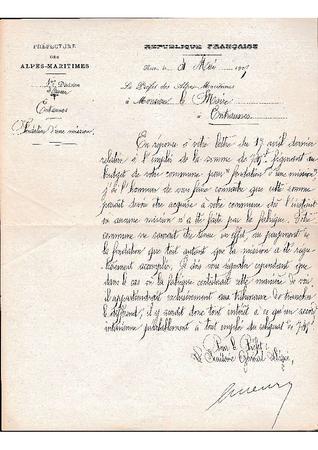 PRÉFECTURE
DES
ALPES-MARITIMES
1ère Division
Entraunes
Fondation d'une mission
RÉPUBLIQUE FRANÇAISE
Nice, le 4 Mai 190
Le Préfet des Alpes-Maritimes
à Monsieur le Maire
à Entraunes
En réponse à votre lettre du 17 avril dernier
relative à l'emploi de la somme de figurant au
budget de votre commune pour "fondation d'une mission"
j'ai l'honneur de vous faire connaître que cette somme
paraît devoir être acquise à votre commune dès l'instant
où aucune mission n'a été faite par la fabrique. Votre
commune ne saurait être tenue en effet, au paiement de
la fondation que tout autant que la mission a été régu-
lièrement accomplie. Je dois vous rappeler cependant que
dans le cas où la fabrique contesterait cette manière de voir
il appartiendrait exclusivement aux tribunaux de trancher
le différend; il y aurait donc tout intérêt à ce qu'un accord
intervienne préalablement à tout emploi du reliquat de
Pour le Préfet,
Le Secrétaire Général délégué